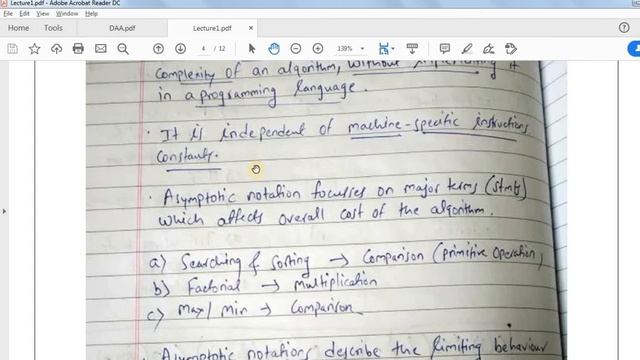 Lecture1.pdf - Adobe Acrobat Reader DC
Home Tools DAA.pdf Lecture1.pdf ×
4 / 12 139%
complexity of an algorithm, without implementing it
in a programming language.
· It is independent of machine-specific instructions
Constants.
· Asymptotic notation focusses on major terms (stmts)
which affects overall cost of the algorithm.
a) Searching & Sorting → Comparison (primitive operation)
b) Factorial → Multiplication
c) Max/Min → Comparison
· Asymptotic notations describe the limiting behaviour